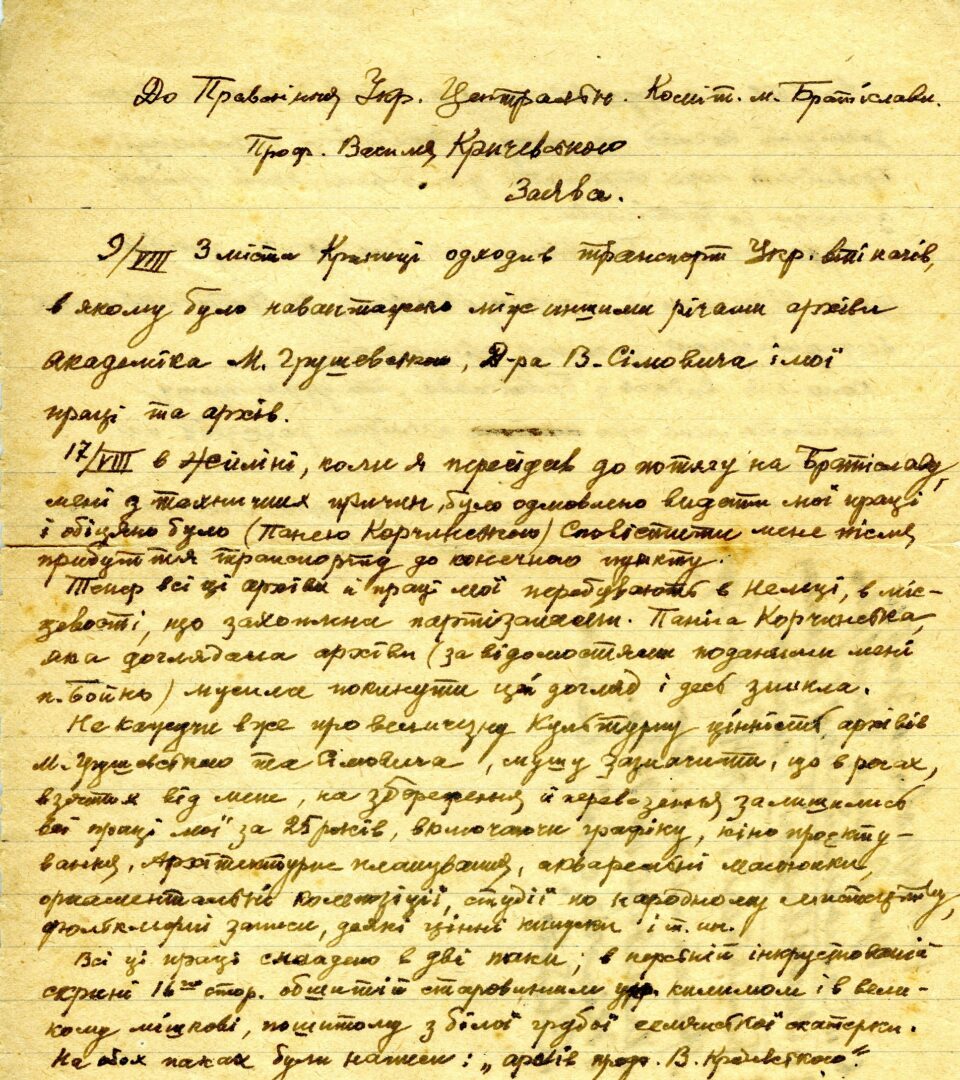 До Правління Укр. Центральн. Коміт. м. Братіслави.
Проф. Василя Кричевського
Заява.
9/VIII З міста Криниці одходив транспорт Укр. втікачів,
в якому було навантажено між иншими річами архіви
академіка М. Грушевського, Д-ра В. Сімовича і мої
праці та архів.
17/VIII в Жиліні, коли я переїздив до потягу на Братіславу,
мені з технічних причин, було одмовлено видати мої праці
і обіцяно було (Панею Корчинською) сповістити мене після
прибуття транспорту до конечного пункту.
Тепер всі ці архіви й праці мої перебувають в Немці, в міс-
цевості, що захоплена партізанами. Паніа Корчинська,
яка доглядала архіви (за відомостями поданими мені
п. Бойко) мусила покинути цей догляд і десь зникла.
Не кажучи вже про величезну культурну цінність архівів
М. Грушевського та Сімовича, мушу зазначити, що в речах,
взятих від мене, на збереження й перевезення залишились
всі праці мої за 25 років, включаючи графіку, кіно проєкту-
вання, Архітектурне планування, акварельні малюнки,
орнаментальні композіції, студії по народному мистецтву,
фольклорні записи, деякі цінні книжки і т. ин.
Всі ці праці складено в дві паки; в першій інкрустованій
скрині 16го стор. обшитій старовинним укр. килимом і в вели-
кому мішкові, пошитому з білої грубої селянської скатерки.
На обох паках були написи: „архів проф. В. Кричевського"